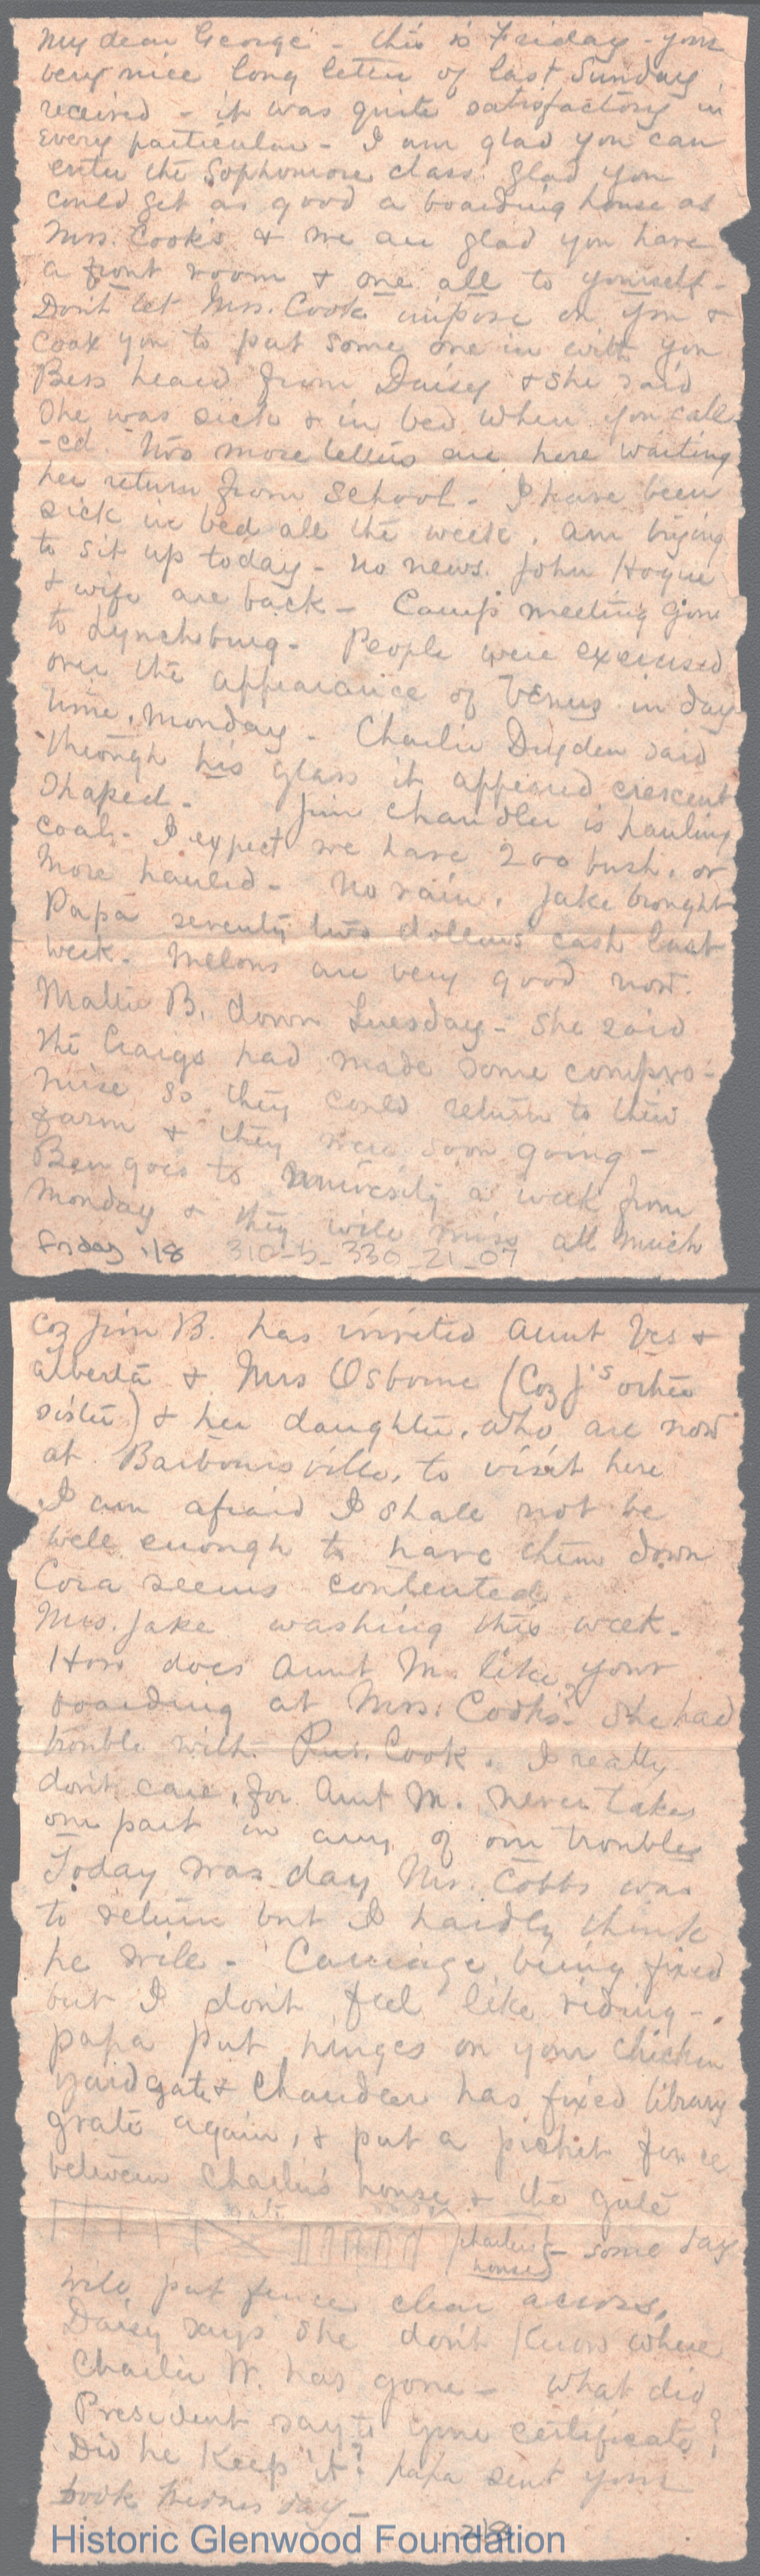 My dear George - this is Friday - your
very nice long letter of last Sunday
received - it was quite satisfactory in
every particular - I am glad you can
enter the Sophomore class. Glad you
could get as good a boarding house as
Mrs. Cook's & we are glad you have
a front room & one all to yourself -
Dont let Mrs. Cook impose on you &
coax you to put some one in with you
Bess heard from Daisy & she said
she was sick & in bed when you call
-ed. Two more letters are here waiting
her return from School - I have been
sick in bed all the week, am trying
to sit up today - no news. John Hogue
& wife are back - Camp meeting gone
to Lynchburg - People were exercised
over the appearance of Venus in day
time, Monday - Charlie Dryden said
through his glass it appeared crescent
shaped - Jim Chandler is hauling
coal - I expect we have 200 bush. or
more hauled - No rain. Jake brought
Papa seventy two dollars cash last
week - Melons are very good now.
Mattie B. down Tuesday - She said
the Craigs had made some compro-
mise so they could return to their
farm & they were soon going -
Ben goes to University a week from
Monday & they will miss all much
Friday 1/8 310-5-330-21-07
Coz Jim B. has invited Aunt Ves &
Alberta & Mrs Osborne (Coz J's other
sister) & her daughter, who are now
at Barboursville, to visit here
I am afraid I shall not be
well enough to have them down
Cora seems contented.
Mrs. Jake washing this week -
How does Aunt M. like your
boarding at Mrs. Cook's? She had
trouble with Cook. I really
don't care, for Aunt M. never takes
our part in any of our troubles
Today was day Mr. Cobbs was
to return but I hardly think
he will - Carriage being fixed
but I dont feel like riding -
papa put hinges on your chicken
yard gate & Chandler has fixed library
grate again, & put a picket fence
between Charlie's house & the gate
gate
Charlie's house - some day
will put fence clear across,
Daisy says she don't know where
Charlie W. has gone - What did
President say to your certificate?
Did he keep it? papa sent your
book Wednesday -
Historic Glenwood Foundation